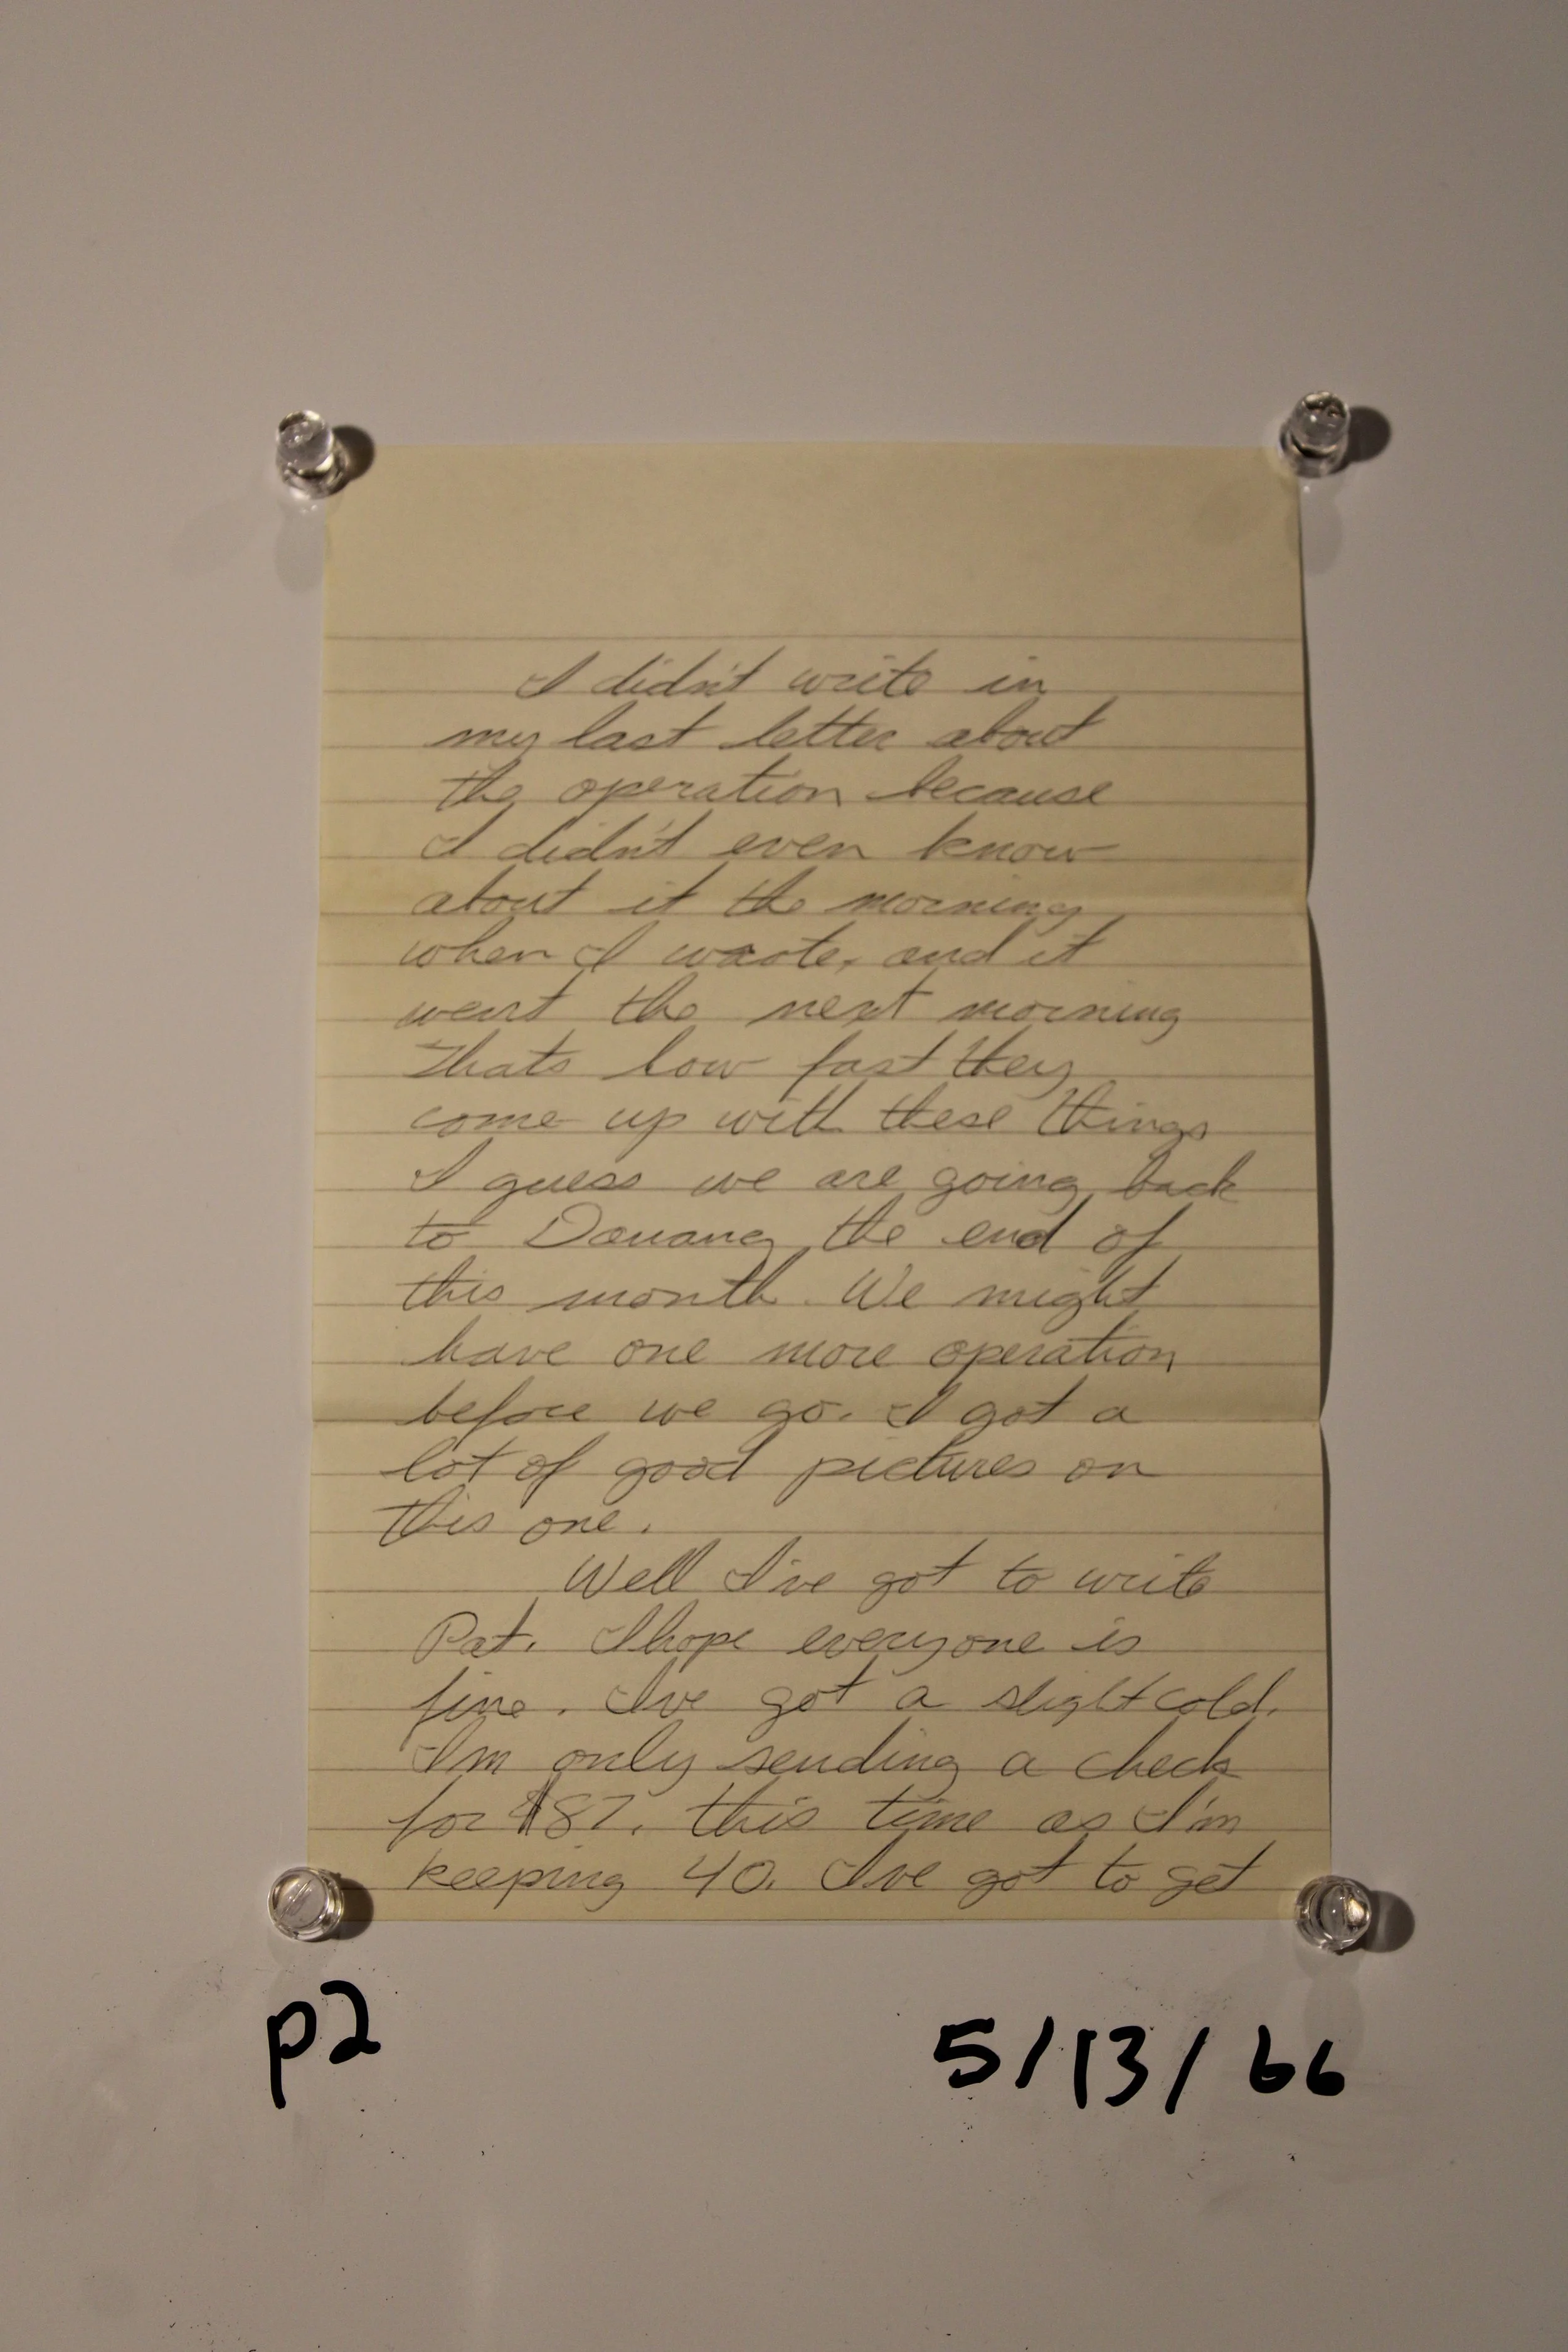 I didn't write in
my last letter about
the operation because
I didn't even know
about it the morning
when I wrote, and it
went the next morning
Thats how fast they
come up with these things
I guess we are going back
to Danang the end of
this month. We might
have one more operation
before we go. I got a
lot of good pictures on
this one.
Well I've got to write
Pat. I hope everyone is
fine. I've got a slight cold.
I'm only sending a check
for $87. this time as I'm
keeping 40. I've got to get
p2
5/13/66